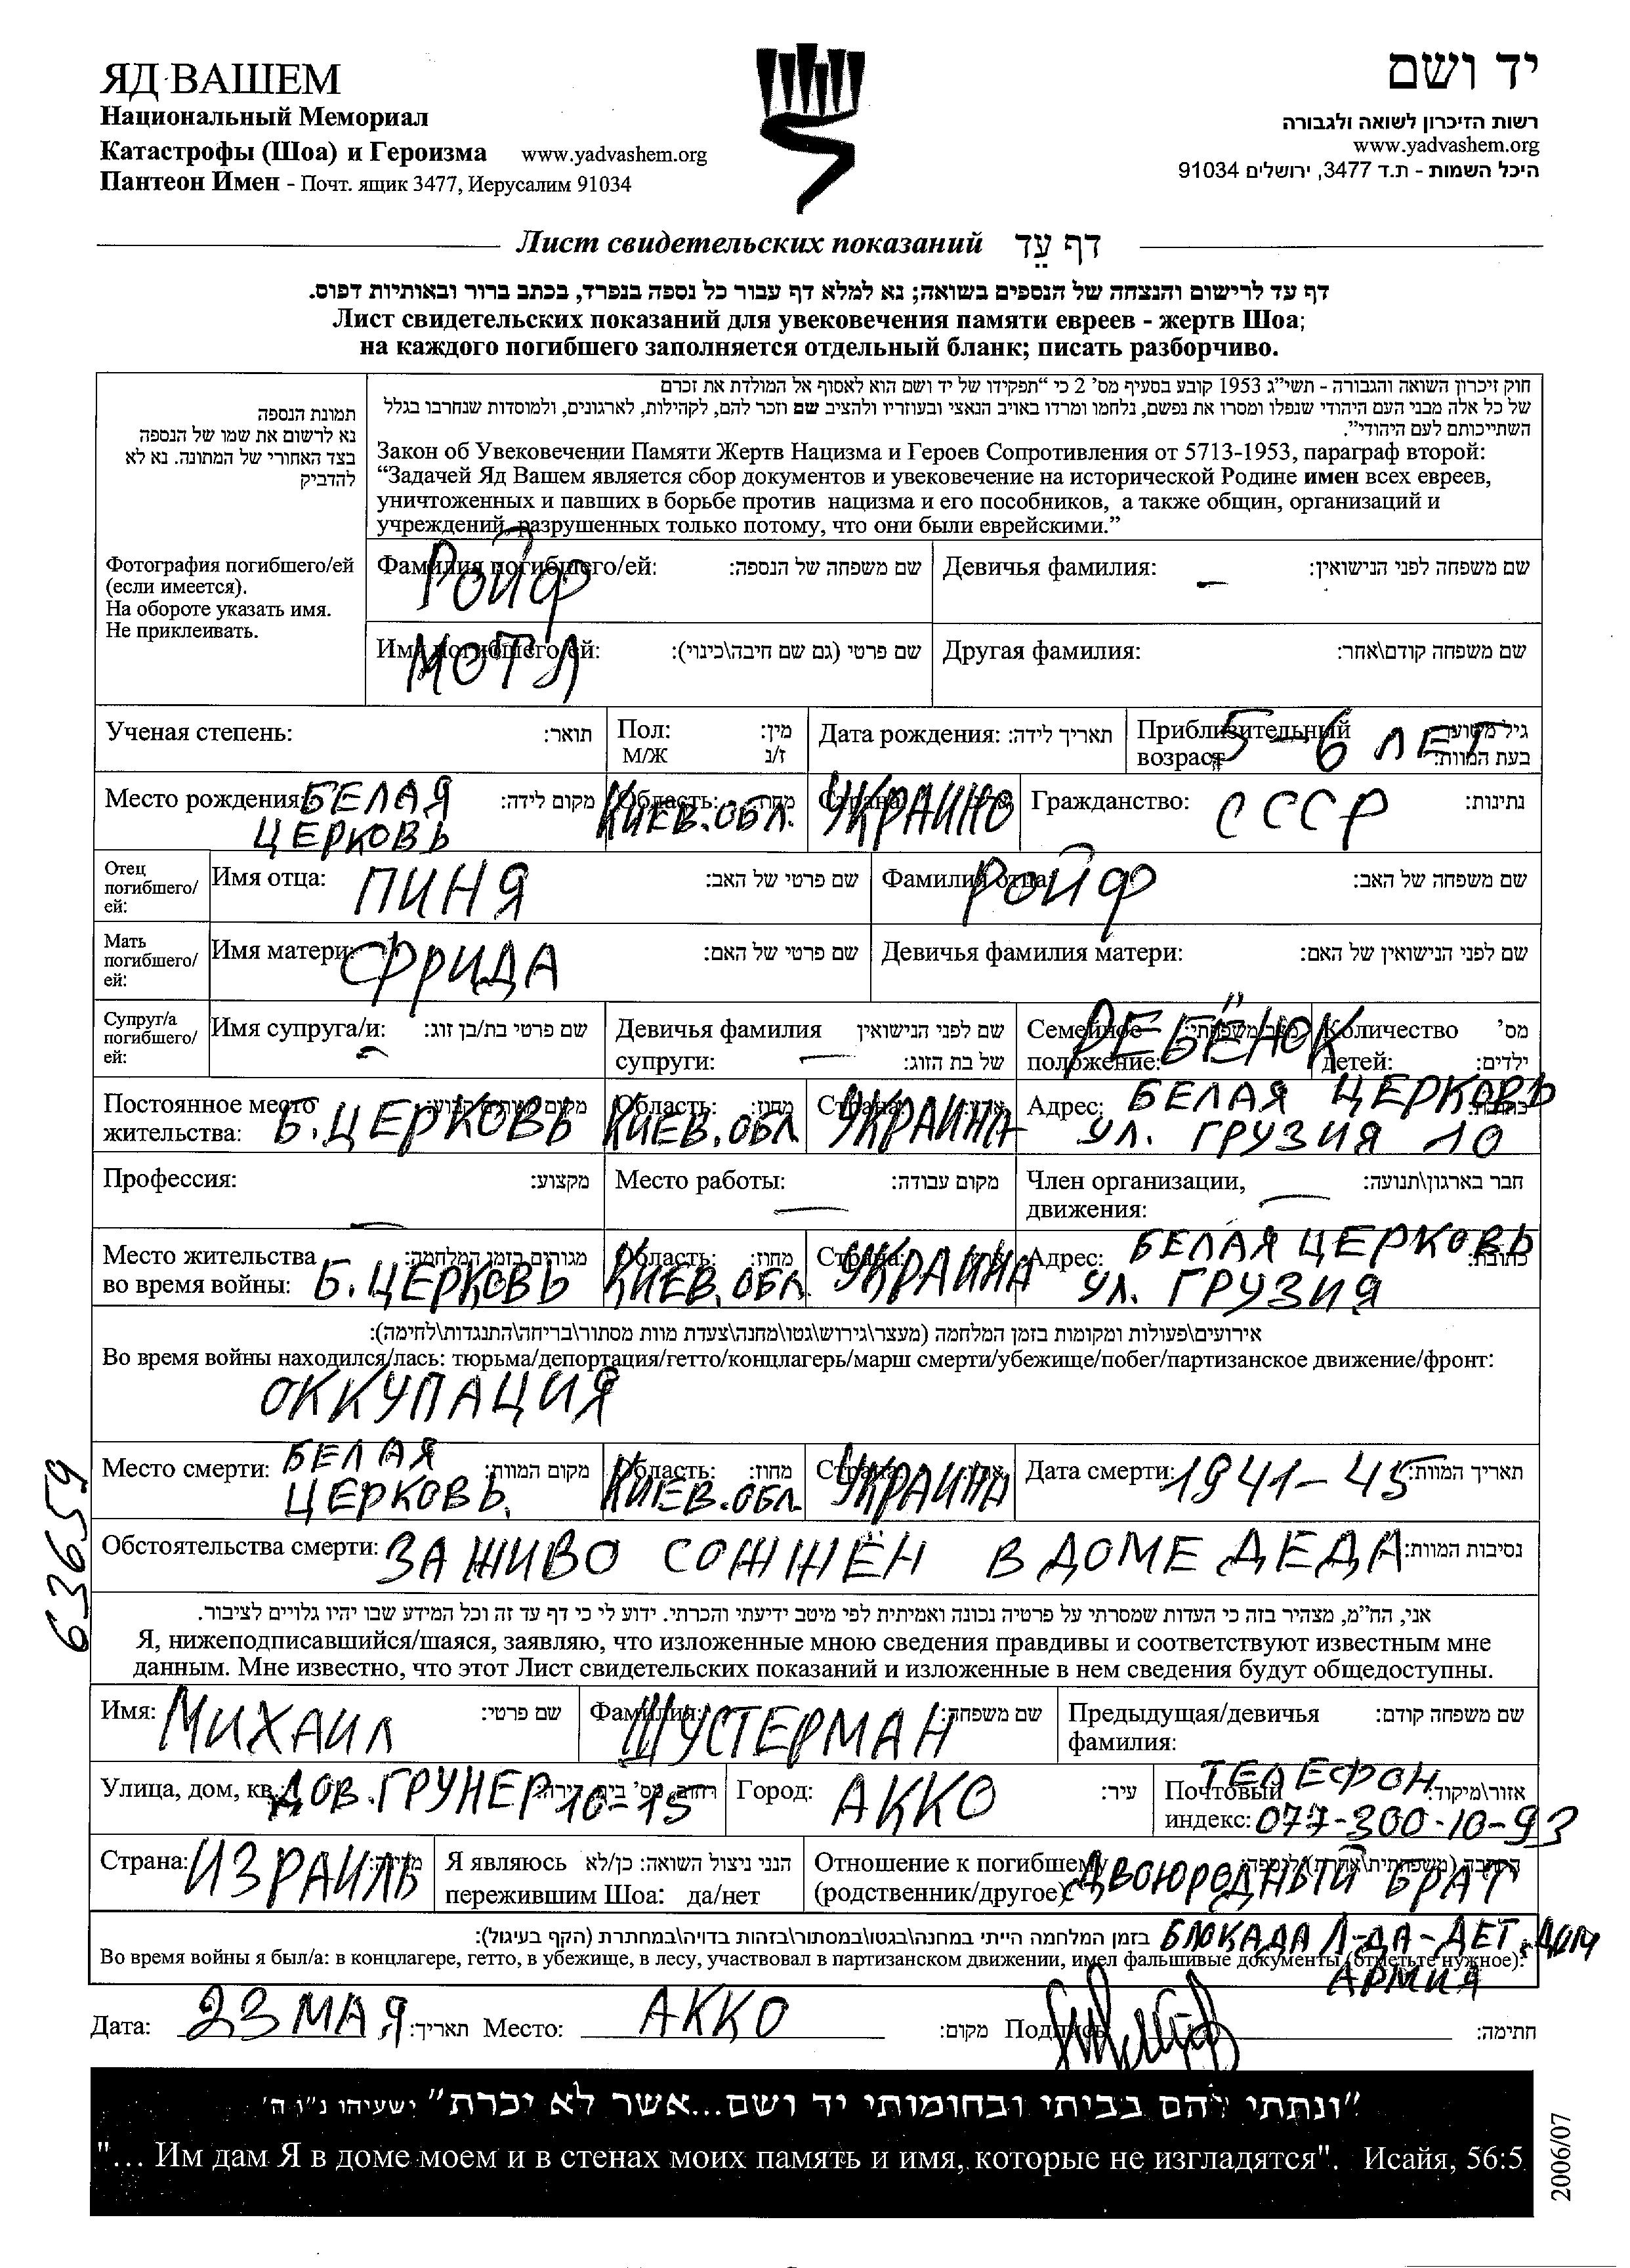 ЯД ВАШЕМ
Национальный Мемориал
Катастрофы (Шоа) и Героизма www.yadvashem.org
Пантеон Имен - Почт. ящик 3477, Иерусалим 91034
יד ושם
רשות הזיכרון לשואה ולגבורה
www.yadvashem.org
היכל השמות - ת.ד 3477, ירושלים 91034
Лист свидетельских показаний דף עֵד
דף עד לרישום והנצחה של הנספים בשואה; נא למלא דף עבור כל נספה בנפרד, בכתב ברור ובאותיות דפוס.
Лист свидетельских показаний для увековечения памяти евреев - жертв Шоа;
на каждого погибшего заполняется отдельный бланк; писать разборчиво.
תמונת הנספה
נא לרשום את שמו של הנספה
בצד האחורי של המתונה. נא לא
להדביק
Фотография погибшего/ей
(если имеется).
На обороте указать имя.
Не приклеивать.
חוק זיכרון השואה והגבורה - תשי"ג 1953 קובע בסעיף מס' 2 כי "תפקידו של יד ושם הוא לאסוף אל המולדת את זכרם
של כל אלה מבני העם היהודי שנפלו ומסרו את נפשם, נלחמו ומרדו באויב הנאצי ובעוזריו ולהציב שם וזכר להם, לקהילות, לארגונים, ולמוסדות שנחרבו בגלל
השתייכותם לעם היהודי".
Закон об Увековечении Памяти Жертв Нацизма и Героев Сопротивления от 5713-1953, параграф второй:
“Задачей Яд Вашем является сбор документов и увековечение на исторической Родине имен всех евреев,
уничтоженных и павших в борьбе против нацизма и его пособников, а также общин, организаций и
учреждений, разрушенных только потому, что они были еврейскими.”
Фамилия погибшего/ей: Ройф שם משפחה של הנספה: Девичья фамилия: – שם משפחה לפני הנישואין:
Имя погибшего/ей: МОТЛ שם פרטי (גם שם חיבה\כינוי): Другая фамилия: שם משפחה קודם\אחר:
Ученая степень: תואר: Пол: מין: Дата рождения: תאריך לידה: Приблизительный 5-6 ЛЕТ גיל משוער
М/Ж ז/נ возраст: בעת המוות:
Место рождения: БЕЛАЯ מקום לידה: Область: КИЕВ.ОБЛ. מחוז: Страна: УКРАИНО Гражданство: СССР נתינות:
ЦЕРКОВЬ
Отец
погибшего/
ей:
Имя отца: ПИНЯ שם פרטי של האב: Фамилия отца: Ройф שם משפחה של האב:
Мать
погибшего/
ей:
Имя матери: ФРИДА שם פרטי של האם: Девичья фамилия матери: שם לפני הנישואין של האם:
Супруг/а
погибшего/
ей:
Имя супруга/и: – שם פרטי בת/בן זוג: Девичья фамилия שם לפני הנישואין Семейное РЕБЁНОК מצב משפחתי: Количество מס'
супруги: – של בת הזוג: положение: детей: ילדים:
Постоянное место Область: מחוז: Страна: Адрес: БЕЛАЯ ЦЕРКОВЬ כתובת:
жительства: Б.ЦЕРКОВЬ КИЕВ.ОБЛ УКРАИНА УЛ. ГРУЗИЯ 10
Профессия: – מקצוע: Место работы: – מקום עבודה: Член организации, – חבר בארגון\תנועה:
движения:
Место жительства מגורים בזמן המלחמה: Область: מחוז: Страна: Адрес: БЕЛАЯ ЦЕРКОВЬ כתובת:
во время войны: Б.ЦЕРКОВЬ КИЕВ.ОБЛ. УКРАИНА УЛ. ГРУЗИЯ
אירועים\פעולות ומקומות בזמן המלחמה (מעצר\גירוש\גטו\מחנה\צעדת מוות מסתור\בריחה\התנגדות\לחימה):
Во время войны находился/лась: тюрьма/депортация/гетто/концлагерь/марш смерти/убежище/побег/партизанское движение/фронт:
ОККУПАЦИЯ
Место смерти: БЕЛАЯ מקום המוות: Область: КИЕВ.ОБЛ. מחוז: Страна: УКРАИНА Дата смерти: 1941-45 תאריך המוות:
ЦЕРКОВЬ.
Обстоятельства смерти: ЗАЖИВО СОЖЖЁН В ДОМЕ ДЕДА נסיבות המוות:
אני, הח"מ, מצהיר בזה כי העדות שמסרתי על פרטיה נכונה ואמיתית לפי מיטב ידיעתי והכרתי. ידוע לי כי דף עד זה וכל המידע שבו יהיו גלויים לציבור.
Я, нижеподписавшийся/шаяся, заявляю, что изложенные мною сведения правдивы и соответствуют известным мне
данным. Мне известно, что этот Лист свидетельских показаний и изложенные в нем сведения будут общедоступны.
Имя: МИХАИЛ שם פרטי: Фамилия: ШУСТЕРМАН שם משפחה: Предыдущая/девичья שם משפחה קודם:
фамилия:
Улица, дом, кв.: ДОВ.ГРУНЕР 10-15 Город: АККО עיר: Почтовый ТЕЛЕФОН אזור\מיקוד:
индекс: 077-300-10-93
Страна: ИЗРАИЛЬ מדינה: Я являюсь הנני ניצול השואה: כן/לא Отношение к погибшему
пережившим Шоа: да/нет (родственник/другое): ДВОЮРОДНЫЙ БРАТ
בזמן המלחמה הייתי במחנה\בגטו\במסתור\בזהות בדויה\במחתרת (הקף בעיגול): БЛОКАДА Л-ДА-ДЕТ.ДОМ
Во время войны я был/а: в концлагере, гетто, в убежище, в лесу, участвовал в партизанском движении, имел фальшивые документы (отметьте нужное):
АРМИЯ
Дата: 23 МАЯ תאריך: Место: АККО מקום: Подпись: חתימה:
63659
"ונתתי להם בביתי ובחומותי יד ושם...אשר לא יכרת" ישעיהו נ"ו ה'
"... Им дам Я в доме моем и в стенах моих память и имя, которые не изгладятся". Исайя, 56:5
2006/07